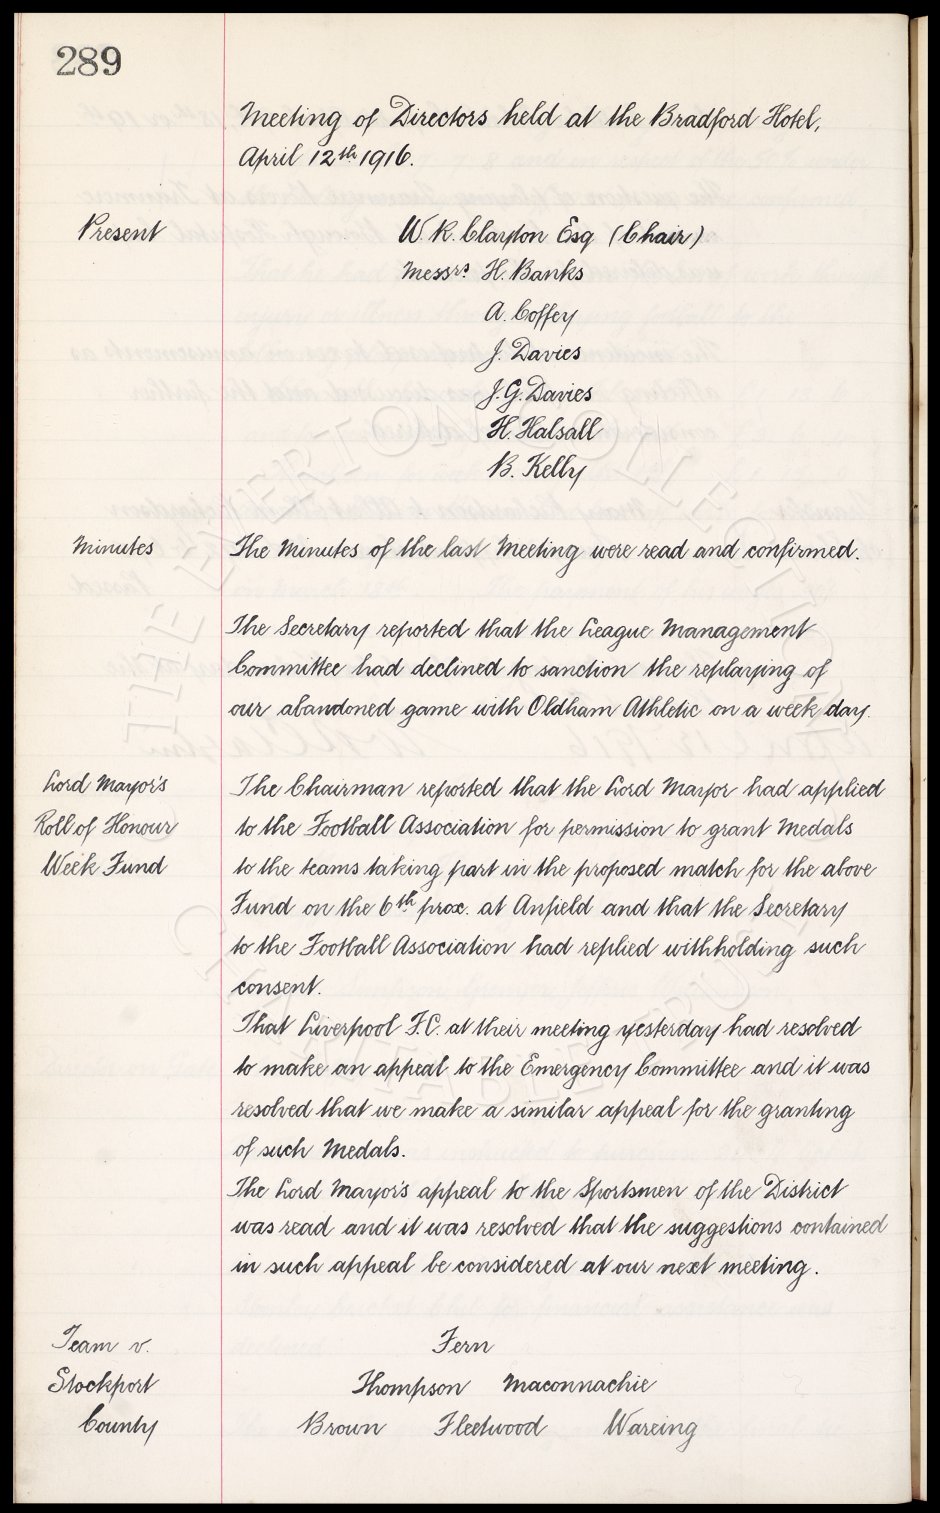 289
Meeting of Directors held at the Bradford Hotel,
April 12th 1916.
Present W. R. Clayton Esq (Chair)
Messrs H. Banks
A. Coffey
J. Davies
J. G. Davies
H. Halsall
B. Kelly
Minutes The Minutes of the last Meeting were read and confirmed.
The Secretary reported that the League Management
Committee had declined to sanction the replaying of
our abandoned game with Oldham Athletic on a week day.
Lord Mayor's The Chairman reported that the Lord Mayor had applied
Roll of Honour to the Football Association for permission to grant Medals
Week Fund to the teams taking part in the proposed match for the above
Fund on the 6th prox. at Anfield and that the Secretary
to the Football Association had replied withholding such
consent.
That Liverpool F.C. at their meeting yesterday had resolved
to make an appeal to the Emergency Committee and it was
resolved that we make a similar appeal for the granting
of such Medals.
The Lord Mayor's appeal to the Sportsmen of the District
was read and it was resolved that the suggestions contained
in such appeal be considered at our next meeting.
Team v. Fern
Stockport Thompson Maconnachie
County Brown Fleetwood Wareing
THE EVERTON COLLECTION
CHARITABLE TRUST